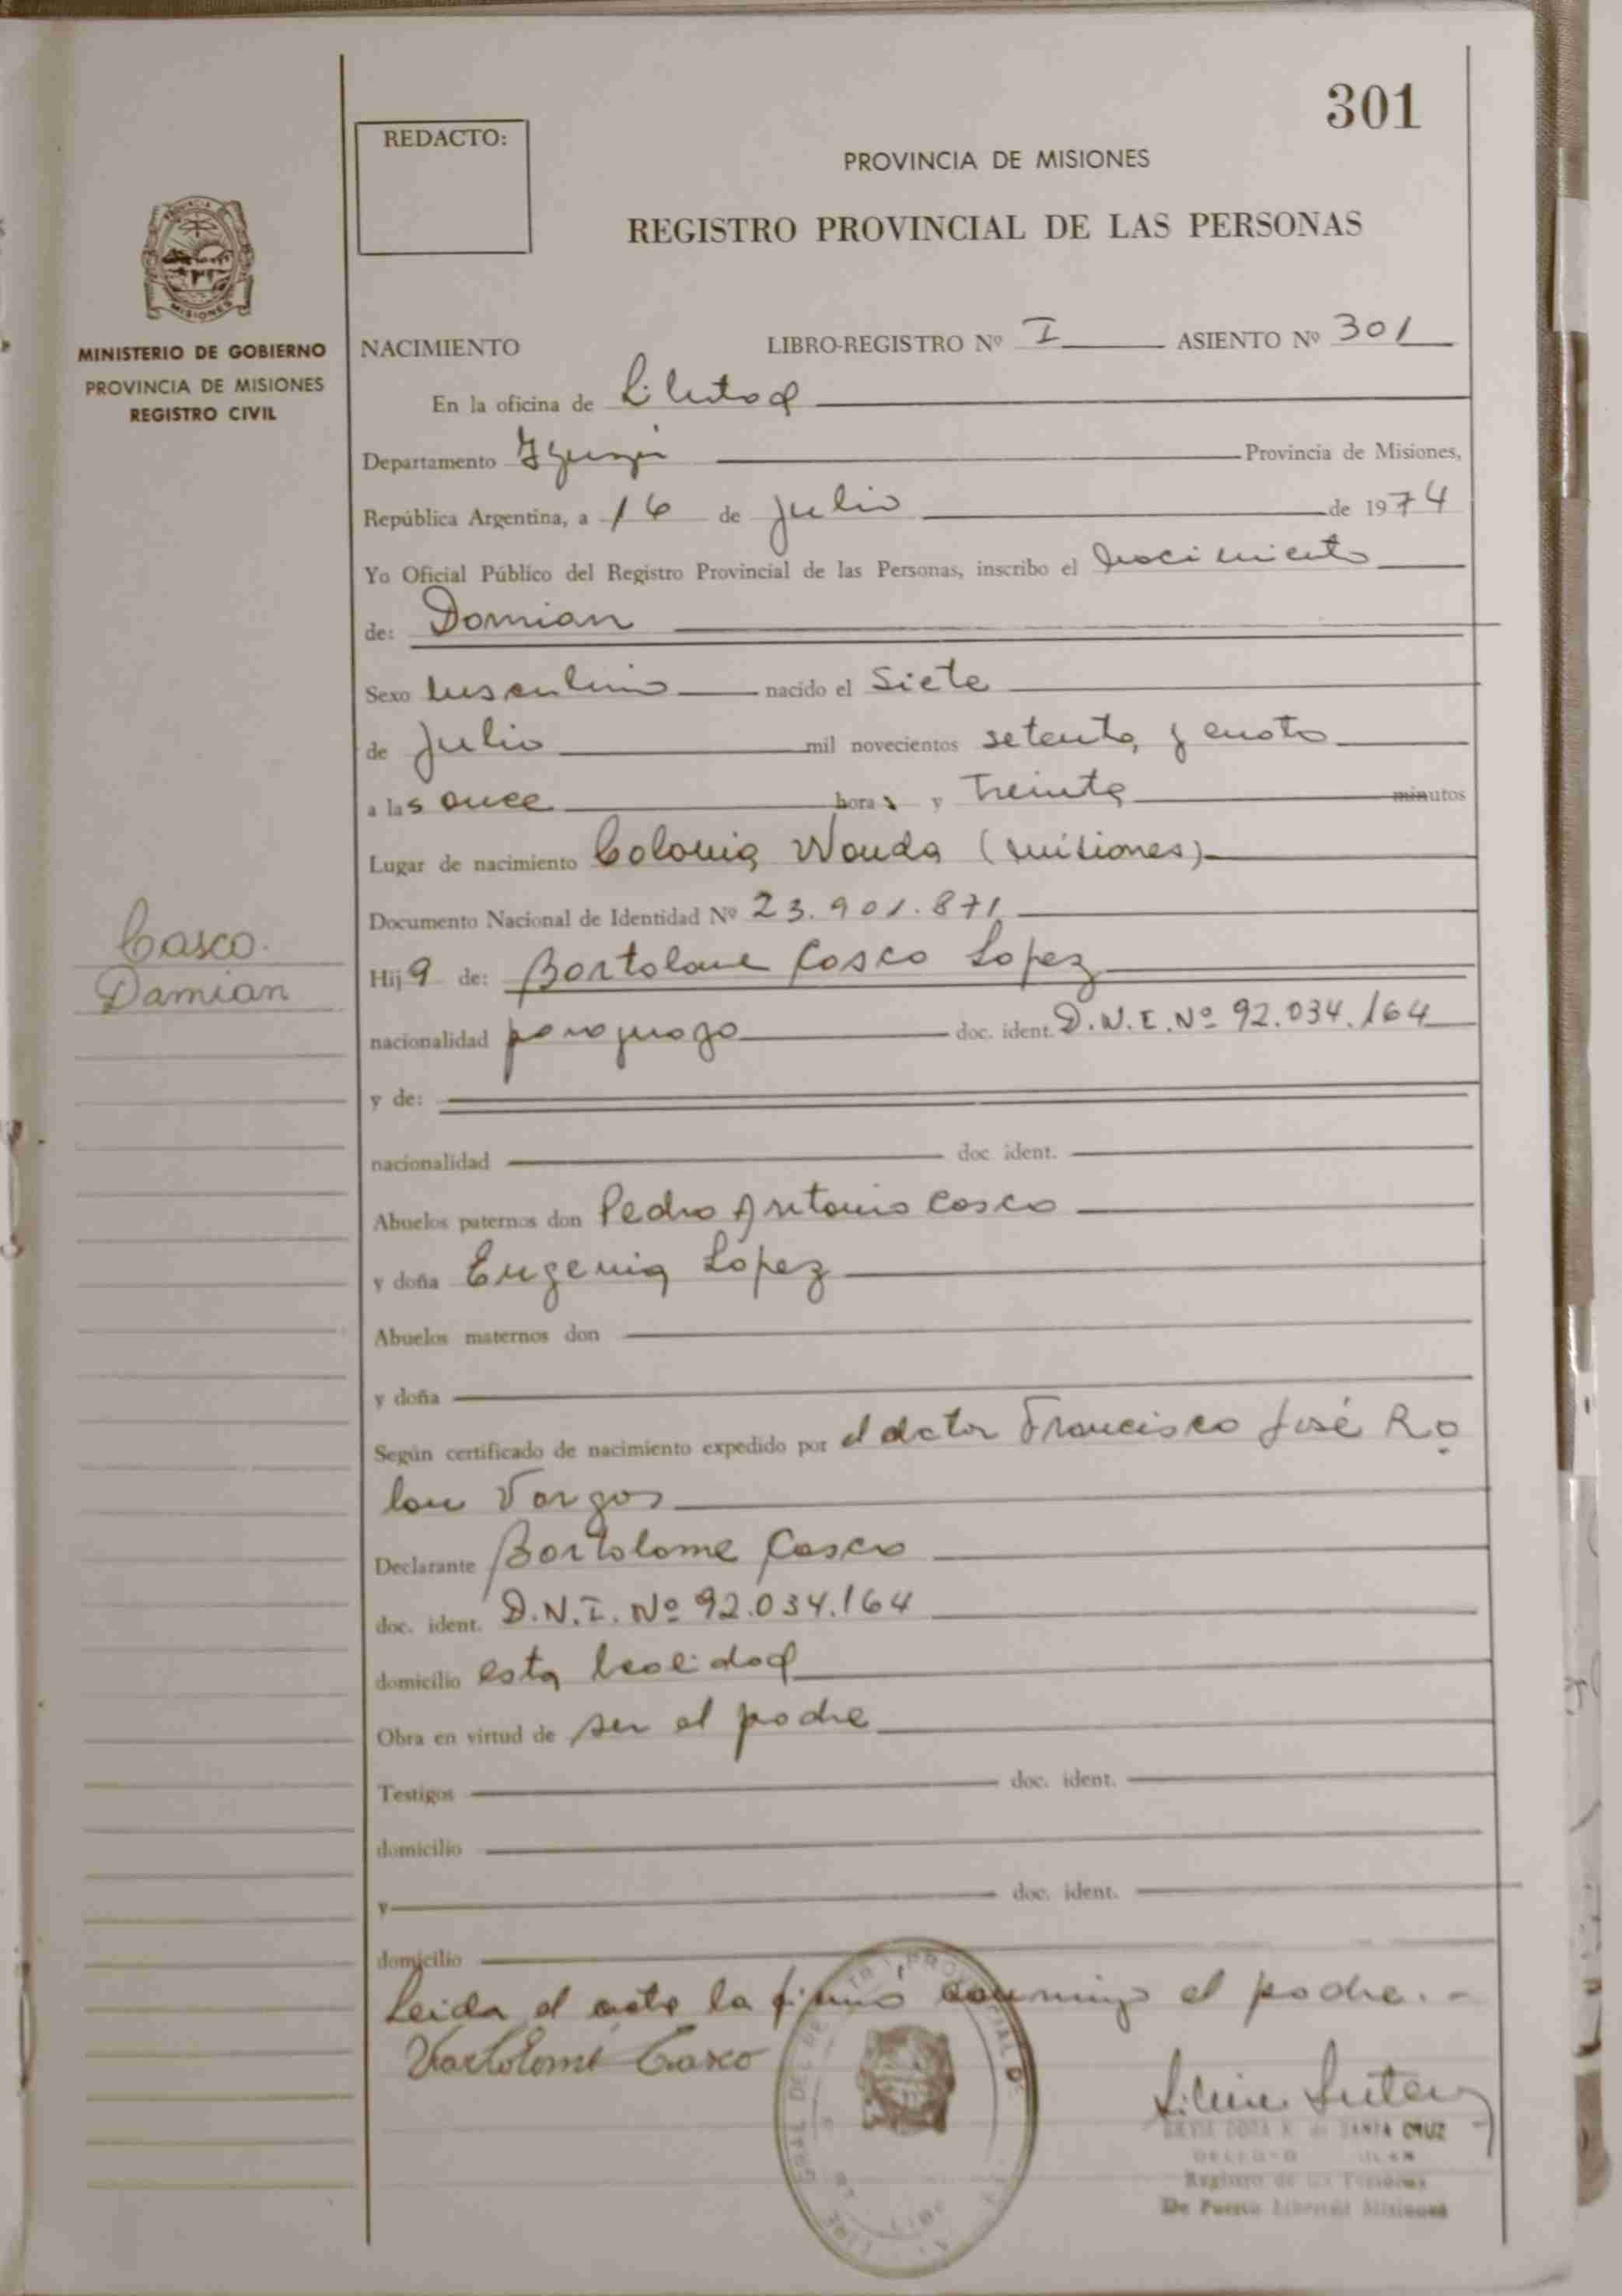 301
REDACTO:
PROVINCIA DE MISIONES
REGISTRO PROVINCIAL DE LAS PERSONAS
MISIONES
MINISTERIO DE GOBIERNO
PROVINCIA DE MISIONES
REGISTRO CIVIL
NACIMIENTO LIBRO-REGISTRO Nº I ASIENTO Nº 301
En la oficina de Libertad
Departamento Iguazú Provincia de Misiones,
República Argentina, a 16 de Julio de 1974
Yo Oficial Público del Registro Provincial de las Personas, inscribo el nacimiento
de: Damian
Sexo masculino nacido el siete
de Julio mil novecientos setenta y cuatro
a las once horas y treinta minutos
Lugar de nacimiento Colonia Wanda (Misiones)
Documento Nacional de Identidad Nº 23.901.871
Casco
Damian
Hijo de: Bartolome Casco Lopez
nacionalidad paraguayo doc. ident. D.N.I. Nº 92.034.164
y de:
nacionalidad doc. ident.
Abuelos paternos don Pedro Antonio Casco
y doña Eugenia López
Abuelos maternos don
y doña
Según certificado de nacimiento expedido por el doctor Francisco José Ro
lon Vargas
Declarante Bartolome Casco
doc. ident. D.N.I. Nº 92.034.164
domicilio esta localidad
Obra en virtud de ser el padre
Testigos doc. ident.
domicilio
y doc. ident.
domicilio
Leida el acta la firmó conmigo el padre.-
Bartolomé Casco
SANTA CRUZ
Registro de las Personas
De Puerto Libertad Misiones